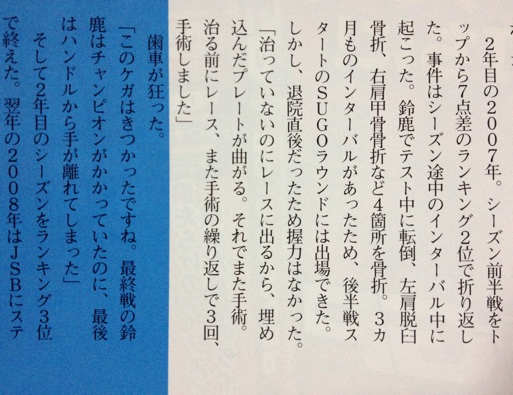 ２年目の２００７年。シーズン前半戦をト
ップから７点差のランキング２位で折り返し
た。事件はシーズン途中のインターバル中に
起こった。鈴鹿でテスト中に転倒、左肩脱臼
骨折、右肩甲骨骨折など４箇所を骨折。３カ
月ものインターバルがあったため、後半戦ス
タートのＳＵＧＯラウンドには出場できた。
しかし、退院直後だったため握力はなかった。
「治っていないのにレースに出るから、埋め
込んだプレートが曲がる。それでまた手術。
治る前にレース、また手術の繰り返しで３回、
手術しました」
歯車が狂った。
「このケガはきつかったですね。最終戦の鈴
鹿はチャンピオンがかかっていたのに、最後
はハンドルから手が離れてしまった」
そして２年目のシーズンをランキング３位
で終えた。翌年の２００８年はＪＳＢにステ